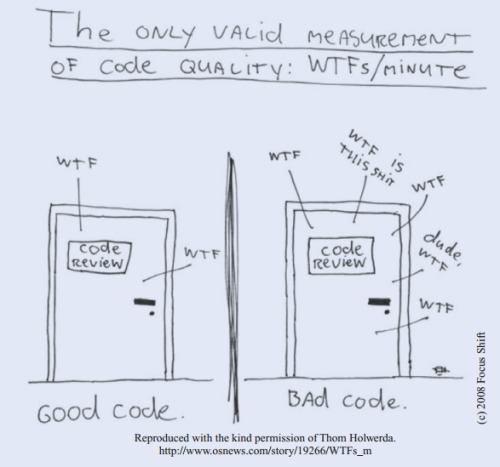 The ONLY VALID MEASUREMENT
OF Code QUALITY: WTFs/MINUTE
WTF
WTF
Code
REVIEW
GOOD Code.
WTF
WTF IS
THIS SHIT
WTF
dude,
WTF
WTF
Code
REVIEW
BAD Code.
(c) 2008 Focus Shift
Reproduced with the kind permission of Thom Holwerda.
http://www.osnews.com/story/19266/WTFs_m